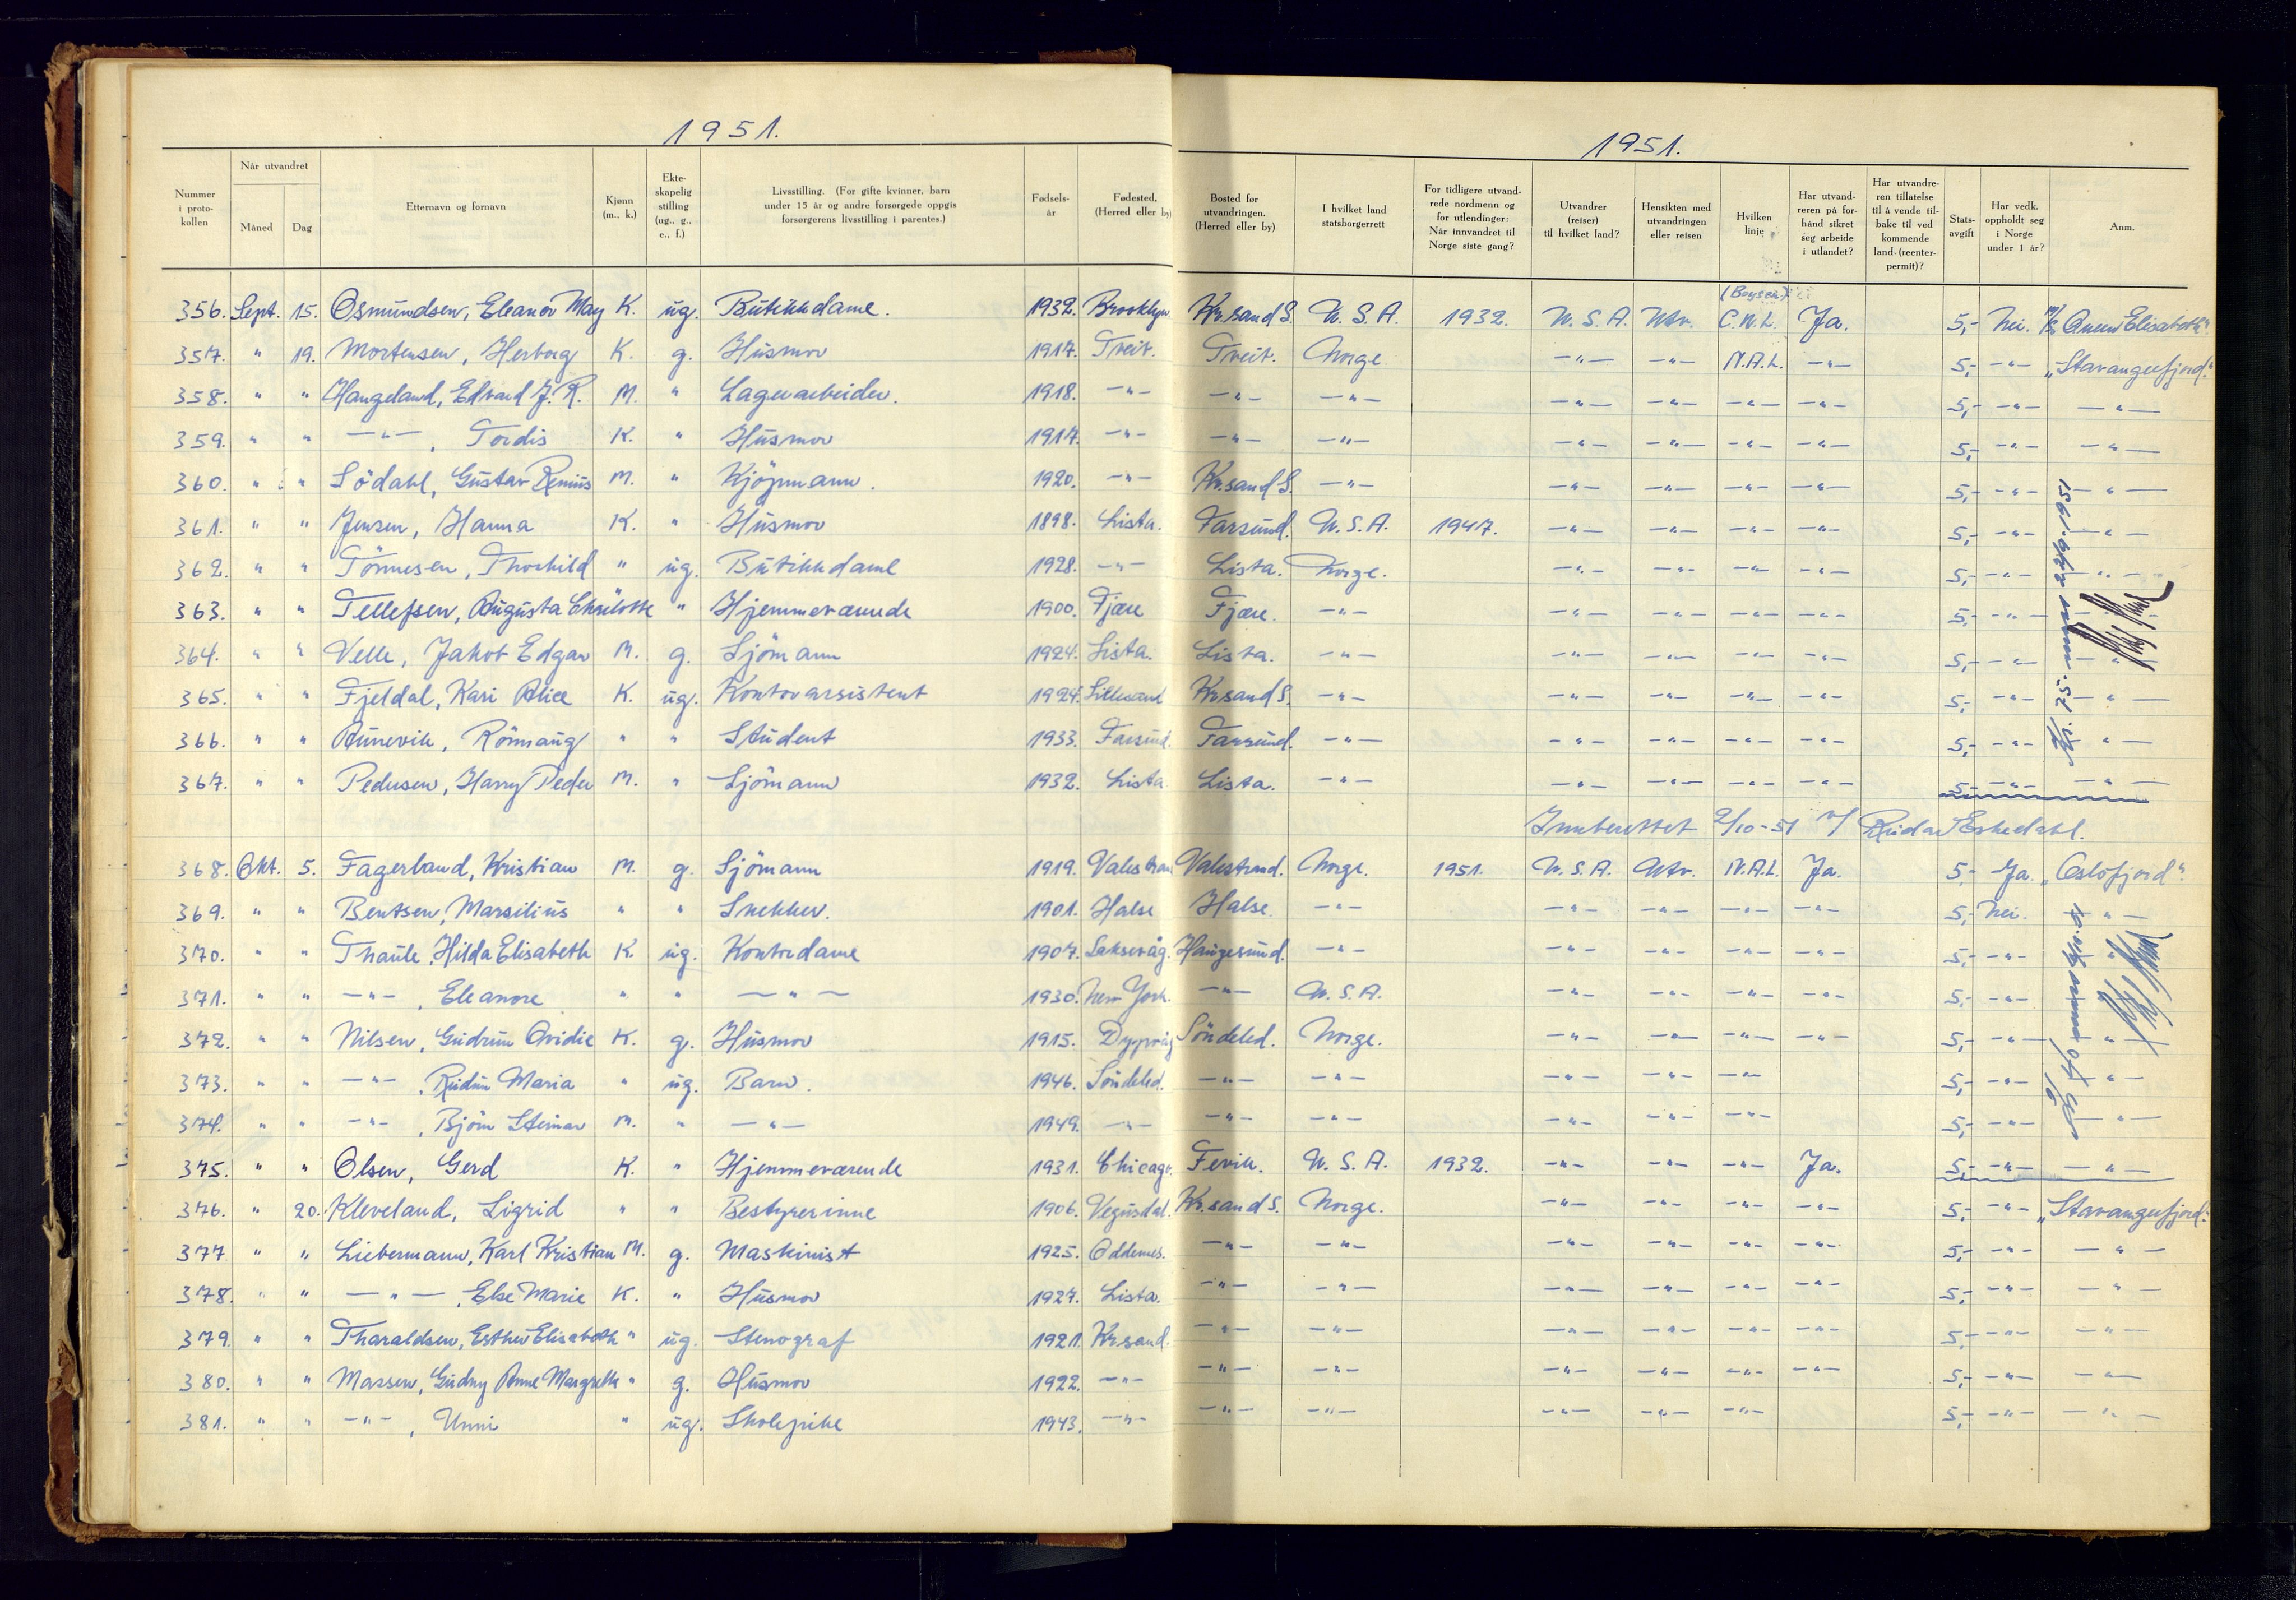 1951.
1951.
Nummer i proto-kollen | Når utvandret Måned Dag | Etternavn og fornavn | Kjønn (m., k.) | Ekte-skapelig stilling (ug., g., e., f.) | Livsstilling. (For gifte kvinner, barn under 15 år og andre forsørgede oppgis forsørgerens livsstilling i parentes.) | Fødsels-år | Fødested. (Herred eller by | Bosted før utvandringen. (Herred eller by) | I hvilket land statsborgerrett | For tidligere utvand-rede nordmenn og for utlendinger: Når innvandret til Norge siste gang? | Utvandrer (reiser) til hvilket land? | Hensikten med utvandringen eller reisen | Hvilken linje | Har utvand-reren på for-hånd sikret seg arbeide i utlandet? | Har utvandre-ren tillatelse til å vende til-bake til ved kommende land (reenter-permit)? | Stats-avgift | Har vedk. oppholdt seg i Norge under 1 år? | Anm.
(Boysen)
356. Sept. 15. Osmundsen, Eleanor May K. ug. Butikkdame. 1932. Brooklyn Kr.sand S. U.S.A. 1932. U.S.A. Utv. C.W.L. Ja. 5,- Nei. M/S "Queen Elisabeth"
357. " 19. Mortensen, Herborg K. g. Husmor 1917. Tveit. Tveit. Norge. -"- -"- N.A.L. -"- 5,- -"- "Stavangerfjord."
358. " " Haugeland, Edvard J. R. M. " Lagerarbeider. 1918. -"- -"- -"- -"- -"- -"- -"- 5,- -"- -"-
359. " " -"-, Tordis K. " Husmor 1917. -"- -"- -"- -"- -"- -"- -"- 5,- -"- -"-
360. " " Södahl, Gustav Remius M. " Kjöpmann. 1920. -"- Kr.sand S. -"- -"- -"- -"- -"- 5,- -"- -"-
361. " " Jensen, Hanna K. " Husmor 1898. Lista. Farsund. U.S.A. 1947. -"- -"- -"- -"- 5,- -"- -"-
362. " " Tönnesen, Thorhild " ug. Butikkdame 1928. -"- Lista. Norge. -"- -"- -"- -"- 5,- -"- -"-
363. " " Tellefsen, Augusta Charlotte " Hjemmeværende 1900. Fjære Fjære. -"- -"- -"- -"- -"- 5,- -"- -"-
364. " " Velle, Jakob Edgar M. g. Sjömann 1924. Lista. Lista. -"- -"- -"- -"- -"- 5,- -"- -"-
365. " " Fjeldal, Kari Alice K. ug. Kontorassistent 1924. Lillesand Kr.sand S. -"- -"- -"- -"- -"- 5,- -"- -"-
366. " " Aunevik, Rönnaug " " Student 1933. Farsund. Farsund. -"- -"- -"- -"- -"- 5,- -"- -"-
367. " " Pedersen, Harry Peder M. " Sjömann 1932. Lista Lista. -"- -"- -"- -"- -"- 5,- -"- -"-
Innberettet 2/10-51 v/ Reidar Eskedahl.
368. Okt. 5. Fagerland, Kristian M. g. Sjömann 1919. Valestrand Valestrand. Norge. 1951. U.S.A. Utv. N.A.L. Ja. 5,- Ja. "Oslofjord".
369. " " Bentsen, Marsilius " " Snekker. 1901. Halse Halse. -"- -"- -"- -"- -"- 5,- Nei. -"-
370. " " Thaule, Hilda Elisabeth K. ug. Kontordame 1907. Laksevåg. Haugesund. -"- -"- -"- -"- -"- 5,- -"- -"-
371. " " -"-, Eleanore " " -"- 1930. New York. -"- U.S.A. -"- -"- -"- -"- 5,- -"-
372. " " Nilsen, Gudrun Ovidie K. g. Husmor 1915. Dypvåg Söndeled. Norge. -"- -"- -"- -"- 5,- -"- -"-
373. " " -"-, Reidun Maria " ug. Barn. 1946. Söndeled. -"- -"- -"- -"- -"- 5,- -"- -"-
374. " " -"-, Björn Steinar M. " -"- 1949. -"- -"- -"- -"- -"- -"- 5,- -"- -"-
375. " " Olsen, Gerd K. " Hjemmeværende 1931. Chicago. Fevik. U.S.A. 1932. -"- -"- -"- Ja. 5,- -"- -"-
376. " 20. Kleveland, Sigrid " " Bestyrerinne 1906. Vegusdal. Kr.sand S. Norge. -"- -"- -"- -"- 5,- -"- "Stavangerfjord."
377. " " Liebermann, Karl Kristian M. g. Maskinist 1925. Oddernes. -"- -"- -"- -"- -"- -"- 5,- -"- -"-
378. " " -"-, Else Marie K. " Husmor 1927. Lista. -"- -"- -"- -"- -"- -"- 5,- -"- -"-
379. " " Tharaldsen, Esther Elisabeth " ug. Stenograf 1921. Kr.sand. -"- -"- -"- -"- -"- -"- 5,- -"- -"-
380. " " Massen, Gudny Anne Margrethe " g. Husmor 1922. -"- -"- -"- -"- -"- -"- -"- 5,- -"- -"-
381. " " -"-, Unni " ug. Skolepike 1943. -"- -"- -"- -"- -"- -"- 5,- -"- -"-